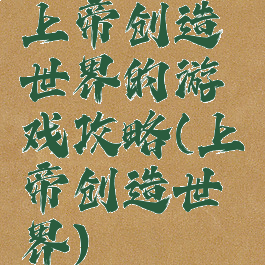 上帝创造
世界的游
戏攻略(上
帝创造世
界)